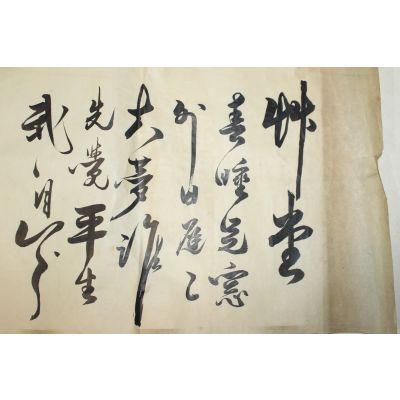 艸堂
春睡足窓
外日遲々
大夢誰
先覺平生
我自知